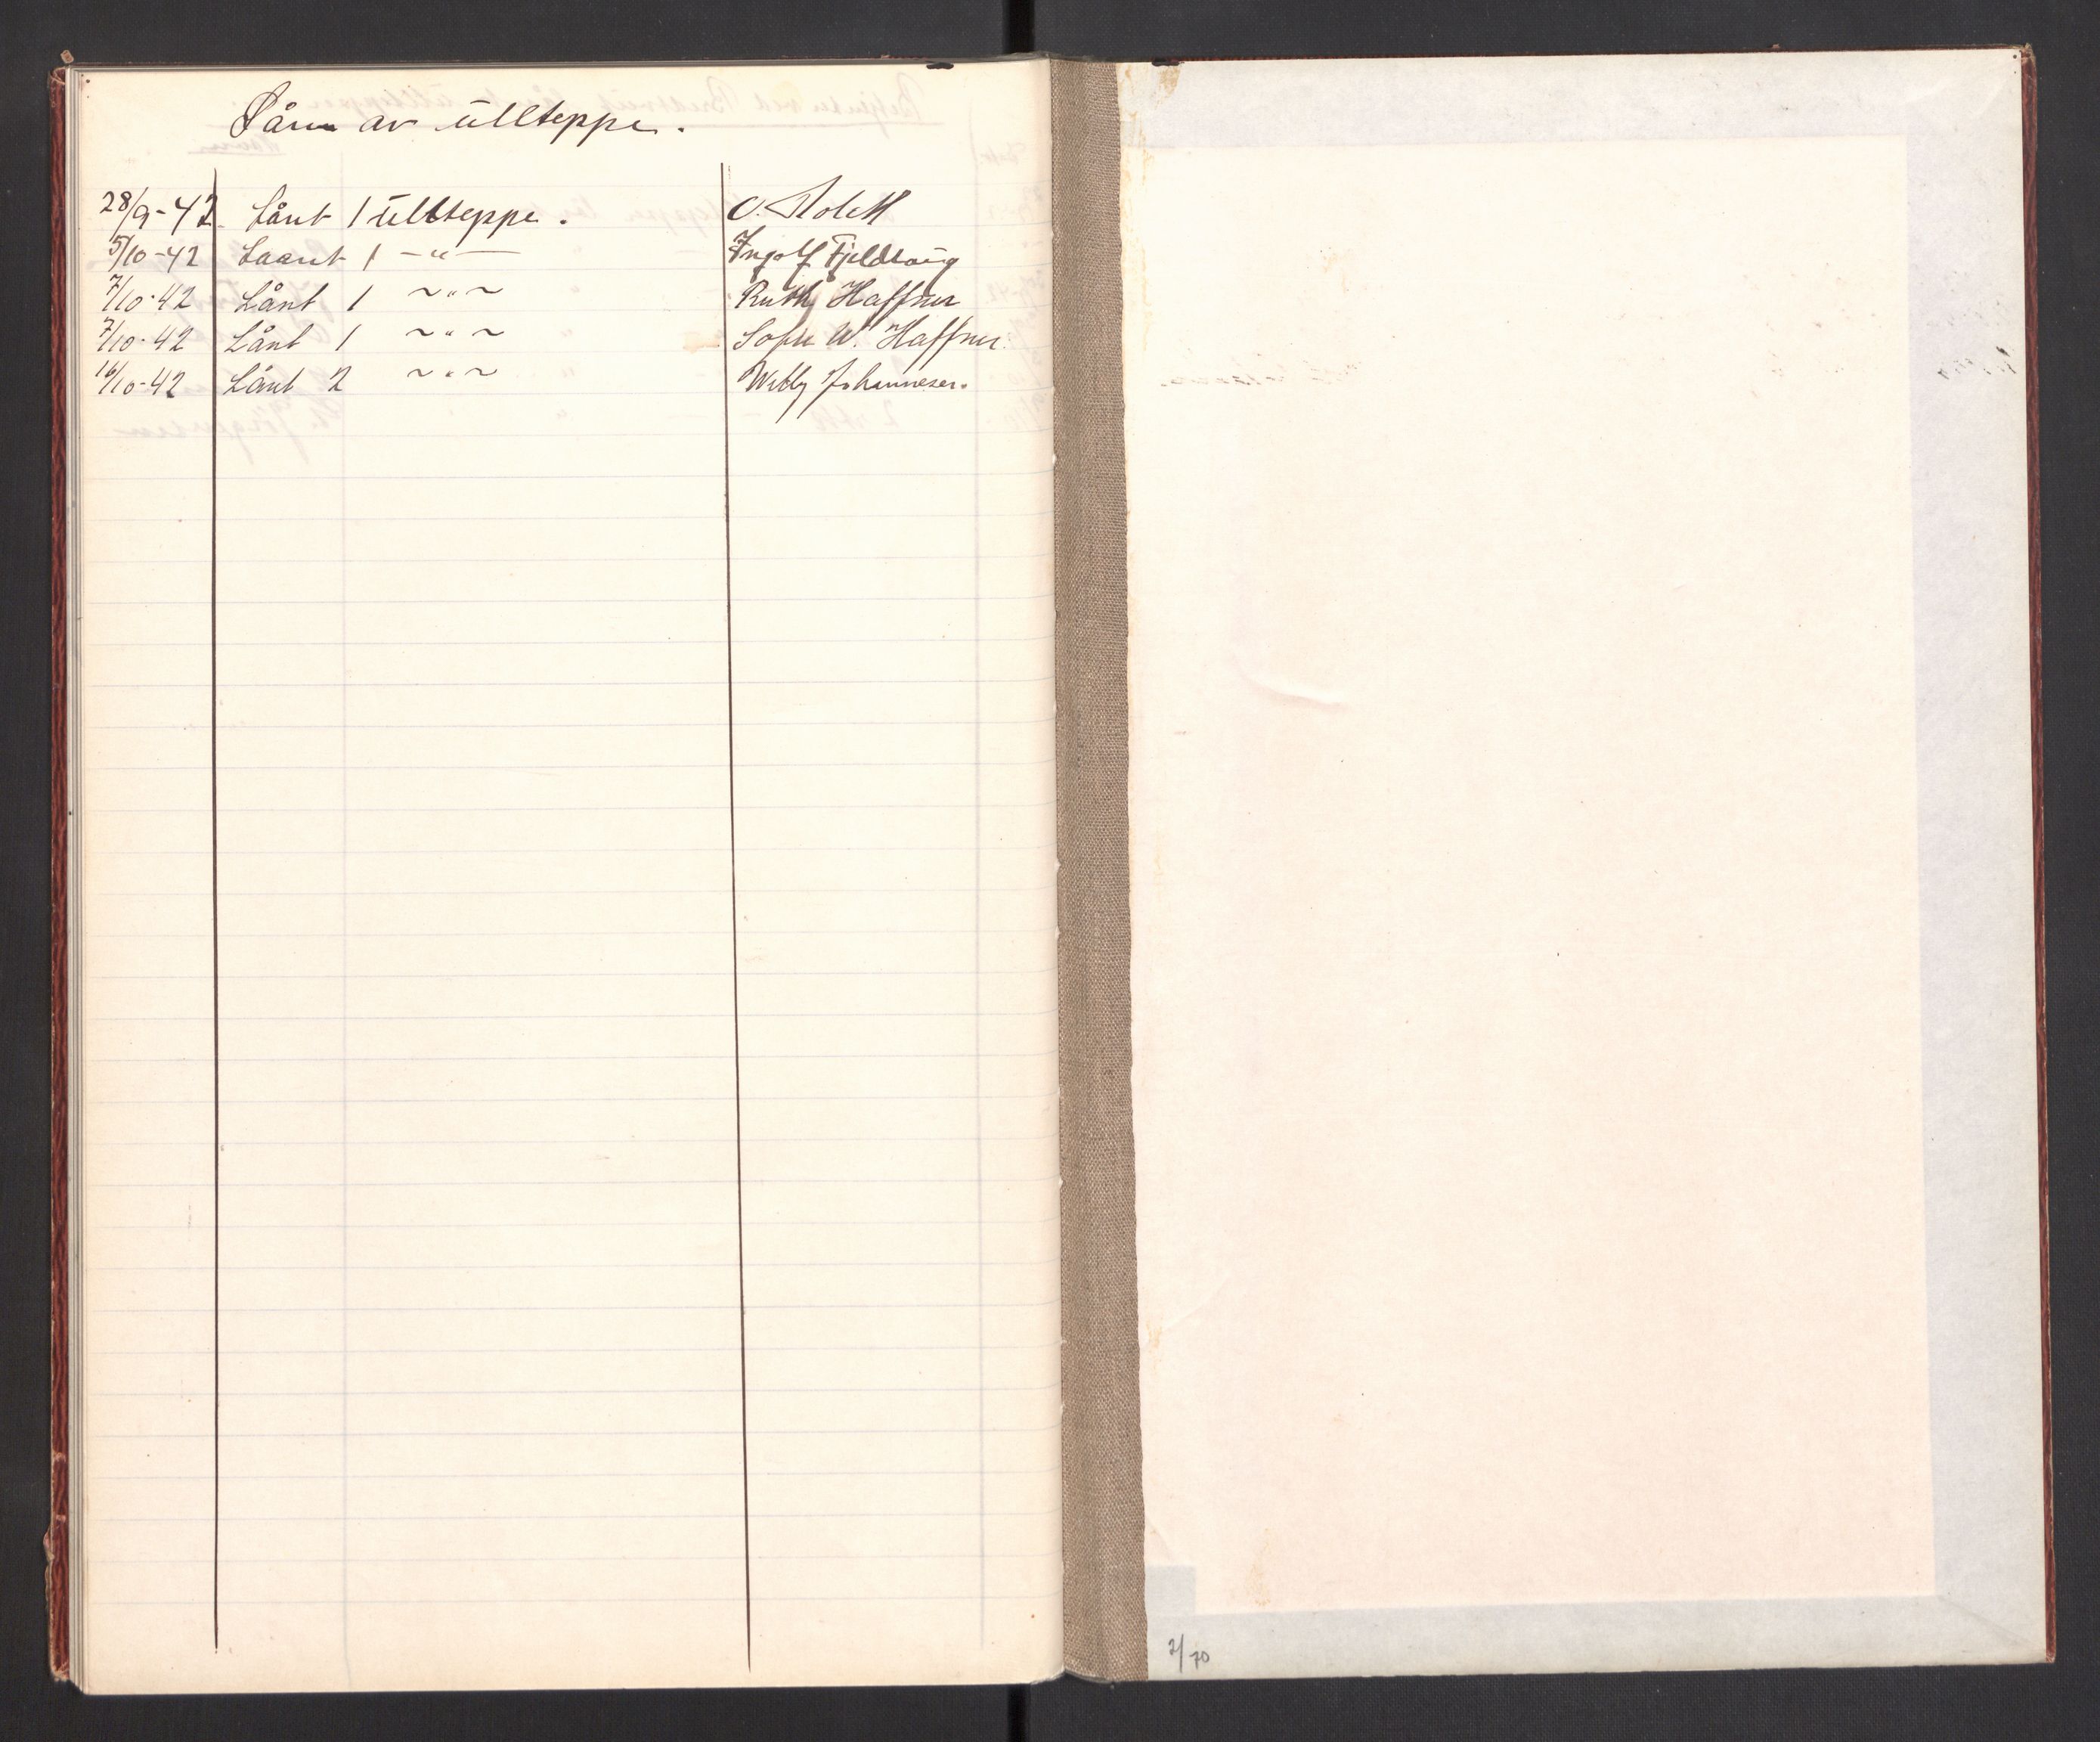 Lån av ullteppe.
28/9-42 Lånt 1 ullteppe. O.
5/10-42 Laant 1 -"- Ingolf Fjeldhaug
7/10-42 Lånt 1 ~"~ Ruth Haffner
7/10-42 Lånt 1 ~"~ Sofie W. Haffner
16/10-42 Lånt 2 ~"~ Willy Johannesen.
2/70